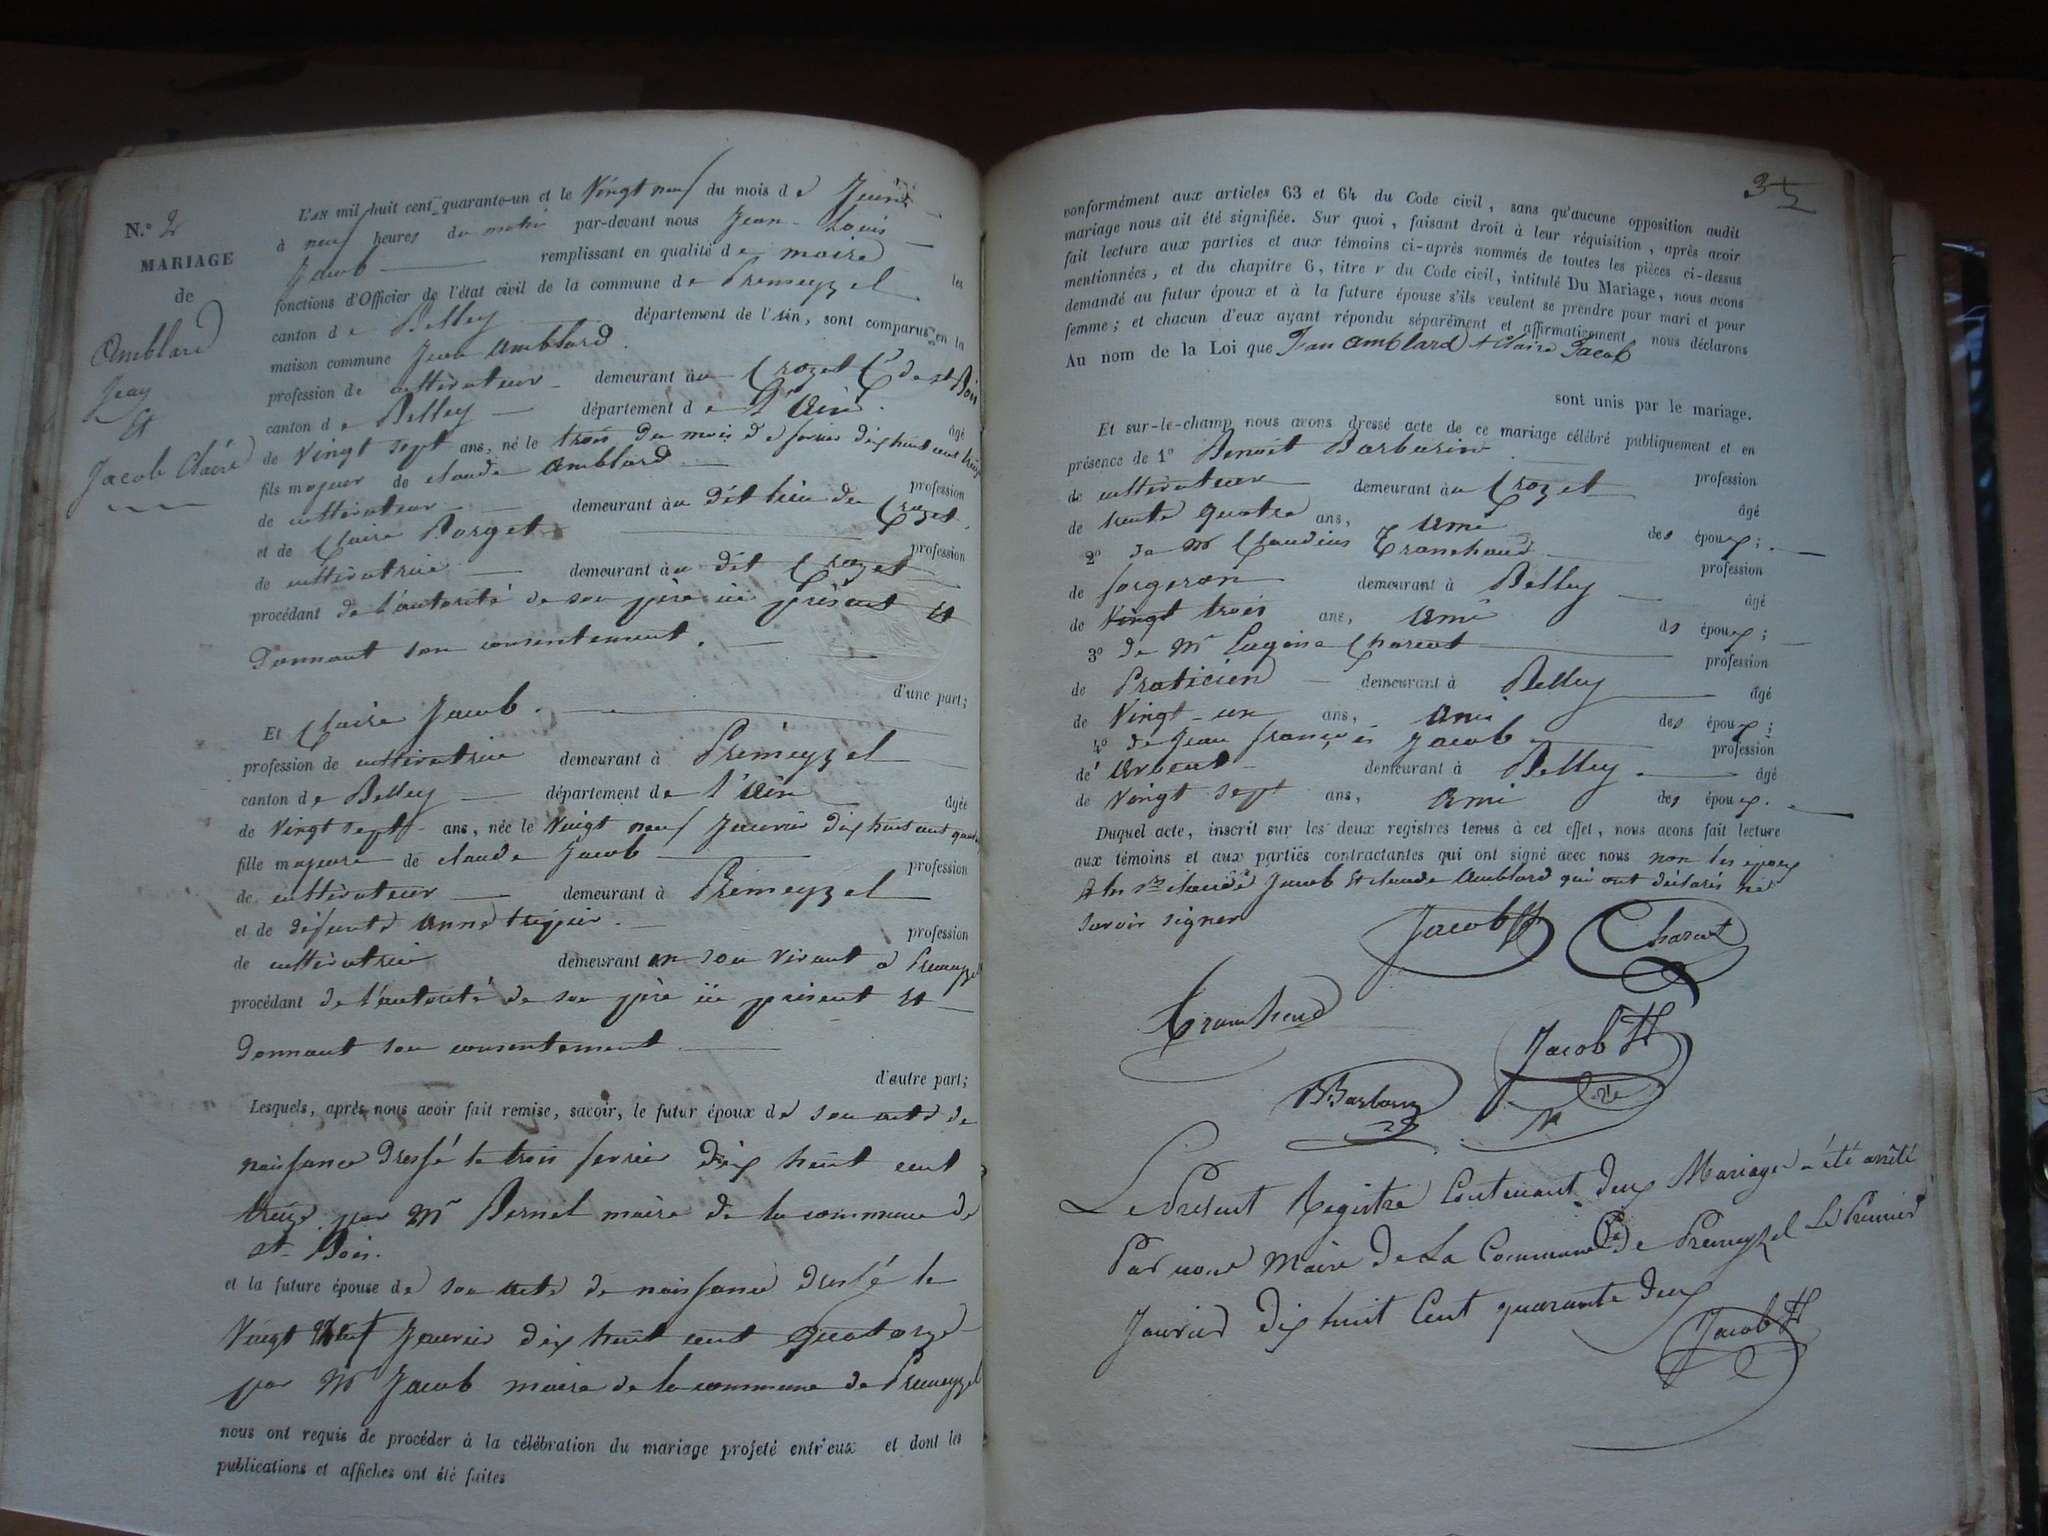 N.º 2
MARIAGE
de
Amblard
Jean
Et
Jacob Claire
L'AN mil huit cent quarante-un et le Vingt neuf du mois de
à neuf heures du matin par-devant nous Jean-Louis
Jacob remplissant en qualité de maire les
fonctions d'Officier de l'état civil de la commune de Prémeyzel
canton de Belley département de l'Ain, sont comparus en la
maison commune Jean Amblard
profession de cultivateur demeurant au Crozet Cne de St Bois
canton de Belley département de l'Ain. âgé
de Vingt sept ans, né le trois du mois de fevrier dix huit cent treize
fils majeur de claude Amblard profession
de cultivateur demeurant au dit lieu du Crozet.
et de Claire Borget profession
de cultivatrice demeurant au dit Crozet
procédant de l'autorité de son père ici présent et
Donnant son consentement.
d'une part;
Et Claire Jacob.
profession de cultivatrice demeurant à Prémeyzel
canton de Belley département de l'Ain âgée
de Vingt sept ans, née le Vingt neuf Janvier dix huit cent quatorze
fille majeure de claude Jacob profession
de cultivateur demeurant à Prémeyzel
et de défunte Anne profession
de cultivatrice demeurant en son vivant à Premeyzel
procédant de l'autorité de son père ici présent et
Donnant son consentement
d'autre part;
Lesquels, après nous avoir fait remise, savoir, le futur époux de son acte de
naissance dressé le trois fevrier dix huit cent
treize par Mr Bernel maire de la commune de
St Bois.
et la future épouse de son acte de naissance dressé le
Vingt neuf Janvier dix huit cent quatorze
par Mr Jacob maire de la commune de Premeyzel
nous ont requis de procéder à la célébration du mariage projeté entr'eux et dont les
publications et affiches ont été faites
conformément aux articles 63 et 64 du Code civil, sans qu'aucune opposition audit
mariage nous ait été signifiée. Sur quoi, faisant droit à leur réquisition, après avoir
fait lecture aux parties et aux témoins ci-après nommés de toutes les pièces ci-dessus
mentionnées, et du chapitre 6, titre v du Code civil, intitulé Du Mariage, nous avons
demandé au futur époux et à la future épouse s'ils veulent se prendre pour mari et pour
femme; et chacun d'eux ayant répondu séparément et affirmativement nous déclarons
Au nom de la Loi que Jean Amblard & Claire Jacob
sont unis par le mariage.
Et sur-le-champ nous avons dressé acte de ce mariage célébré publiquement et en
présence de 1º Benoit Barbarin profession
de cultivateur demeurant au Crozet âgé
de trente quatre ans, Ami des époux;
2º de Mr Claudius Tranchand profession
de forgeron demeurant à Belley âgé
de Vingt trois ans, Ami des époux;
3º de Mr Eugène Charcot profession
de Praticien demeurant à Belley âgé
de Vingt-un ans, Ami des époux;
4º de Jean françois Jacob profession
de demeurant à Belley. âgé
de Vingt sept ans, Ami des époux.
Duquel acte, inscrit sur les deux registres tenus à cet effet, nous avons fait lecture
aux témoins et aux parties contractantes qui ont signé avec nous non les époux
& les Srs claude Jacob et claude Amblard qui ont déclaré ne
savoir signer
Jacob Charcot
Tranchand
Jacob
BBarbarin
Le Présent Registre Contenant deux Mariages a été arrêté
Par nous Maire de La Commune de Premeyzel Le Premier
Janvier dix huit Cent quarante deux
Jacob